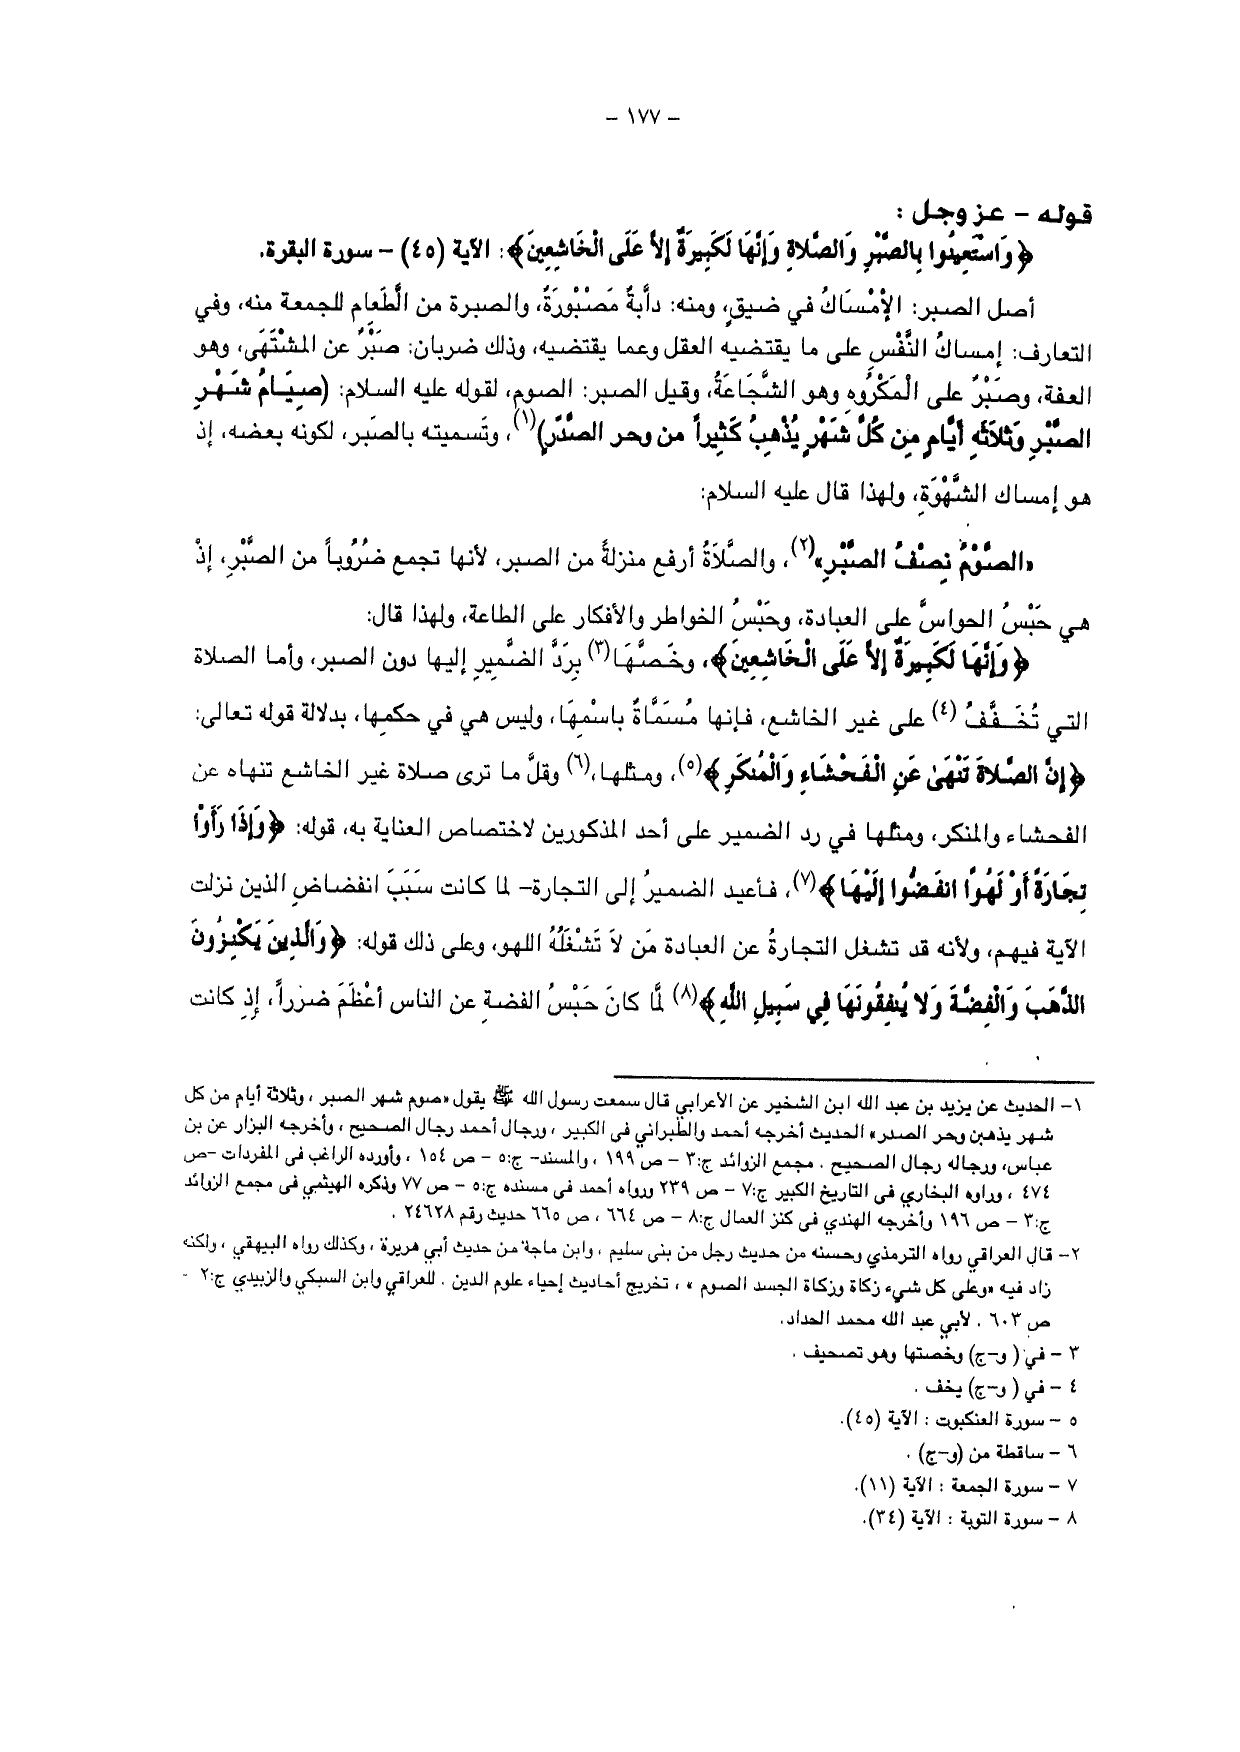 – ١٧٧ –
قوله – عز وجل :
﴿وَاسْتَعِينُوا بِالصَّبْرِ وَالصَّلاةِ وَإِنَّهَا لَكَبِيرَةٌ إِلاَّ عَلَى الْخَاشِعِينَ﴾: الآية (٤٥) – سورة البقرة.
أصل الصبر: الإمْسَاكُ في ضيقٍ، ومنه: دابةٌ مَصْبُورَةٌ، والصبرة من الطَّعام للجمعة منه، وفي
التعارف: إمساكُ النَّفْسِ على ما يقتضيه العقل وعما يقتضيه، وذلك ضربان: صَبْرٌ عن المشْتَهَى، وهو
العفة، وصَبْرٌ على الْمَكْرُوهِ وهو الشَّجَاعَةُ، وقيل الصبر: الصوم، لقوله عليه السلام: (صِيَامُ شَهْرِ
الصَّبْرِ وَثَلاَثَةِ أَيَّامٍ مِنْ كُلِّ شَهْرٍ يُذْهِبُ كَثِيراً من وحر الصَّدْرِ)(١)، وتَسميته بالصَبر، لكونه بعضه، إذ
هو إمساك الشَّهْوَةِ، ولهذا قال عليه السلام:
«الصَّوْمُ نِصْفُ الصَّبْرِ»(٢)، والصَّلاَةُ أرفع منزلةً من الصبر، لأنها تجمع ضُرُوباً من الصَّبْرِ، إذْ
هي حَبْسُ الحواسِّ على العبادة، وحَبْسُ الخواطر والأفكار على الطاعة، ولهذا قال:
﴿وَإِنَّهَا لَكَبِيرَةٌ إِلاَّ عَلَى الْخَاشِعِينَ﴾، وخَصَّهَا(٣) بِرَدِّ الضَّميرِ إليها دون الصبر، وأما الصلاة
التي تُخَفَّفُ (٤) على غير الخاشع، فإنها مُسَمَّاةٌ باسْمِهَا، وليس هي في حكمها، بدلالة قوله تعالى:
﴿إِنَّ الصَّلاةَ تَنْهَىٰ عَنِ الْفَحْشَاءِ وَالْمُنكَرِ﴾(٥)، ومثلها،(٦) وقلَّ ما ترى صلاة غير الخاشع تنهاه عن
الفحشاء والمنكر، ومثلها في رد الضمير على أحد المذكورين لاختصاص العناية به، قوله: ﴿وَإِذَا رَأَوْا
تِجَارَةً أَوْ لَهْوًا انفَضُّوا إِلَيْهَا﴾(٧)، فأعيد الضميرُ إلى التجارة– لما كانت سَبَبَ انفضاضِ الذين نزلت
الآية فيهم، ولأنه قد تشغل التجارةُ عن العبادة مَن لاَ تَشْغَلُهُ اللهو، وعلى ذلك قوله: ﴿وَالَّذِينَ يَكْنِزُونَ
الذَّهَبَ وَالْفِضَّةَ وَلا يُنفِقُونَهَا فِي سَبِيلِ اللَّهِ﴾(٨) لمَّا كانَ حَبْسُ الفضةِ عن الناس أعْظَمَ ضرراً، إذِ كانت
١– الحديث عن يزيد بن عبد الله ابن الشخير عن الأعرابي قال سمعت رسول الله ﷺ يقول «صوم شهر الصبر ، وثلاثة أيام من كل
شهر يذهبن وحر الصدر» الحديث أخرجه أحمد والطبراني فى الكبير ، ورجال أحمد رجال الصحيح ، وأخرجه البزار عن بن
عباس، ورجاله رجال الصحيح . مجمع الزوائد ج:٣ – ص ١٩٩ ، والمسند– ج:٥ – ص ١٥٤ ، وأورده الراغب فى المفردات –ص
٤٧٤ ، وراوه البخاري فى التاريخ الكبير ج:٧ – ص ٢٣٩ ورواه أحمد فى مسنده ج:٥ – ص ٧٧ وذكره الهيثمي فى مجمع الزوائد
ج:٣ – ص ١٩٦ وأخرجه الهندي فى كنز العمال ج:٨ – ص ٦٦٤ ، ص ٦٦٥ حديث رقم ٢٤٦٢٨ .
٢– قال العراقي رواه الترمذي وحسنه من حديث رجل من بنى سليم ، وابن ماجة من حديث أبي هريرة ، وكذلك رواه البيهقي ، ولكنه
زاد فيه «وعلى كل شيء زكاة وزكاة الجسد الصوم » ، تخريج أحاديث إحياء علوم الدين . للعراقي وابن السبكي والزبيدي ج:٢ -
ص ٦٠٣ . لأبي عبد الله محمد الحداد.
٣ – في ( و–ج) وخصتها وهو تصحيف .
٤ – في ( و–ج) يخف .
٥ – سورة العنكبوت : الآية (٤٥).
٦ – ساقطة من (و–ج) .
٧ – سورة الجمعة : الآية (١١).
٨ – سورة التوبة : الآية (٣٤).